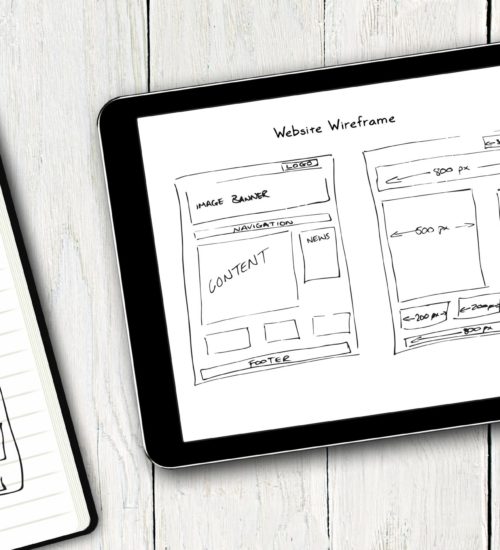 Website Wireframe
LOGO
IMAGE BANNER
NAVIGATION
CONTENT
NEWS
FOOTER
800 px
500 px
200 px
200 px
800 px